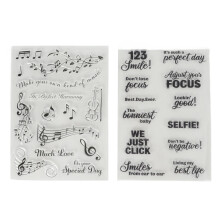 Make your own kind of music
The Perfect Harmony
Much Love
On your
Special Day
123
Smile!
It's such a
perfect day
Don't lose
focus
Adjust your
FOCUS
Best.Day.Ever.
Looking
good!
The
bonniest
baby
SELFIE!
WE
JUST
CLICK
Don't be
negative!
Smiles
from ear to ear
Living my
best life